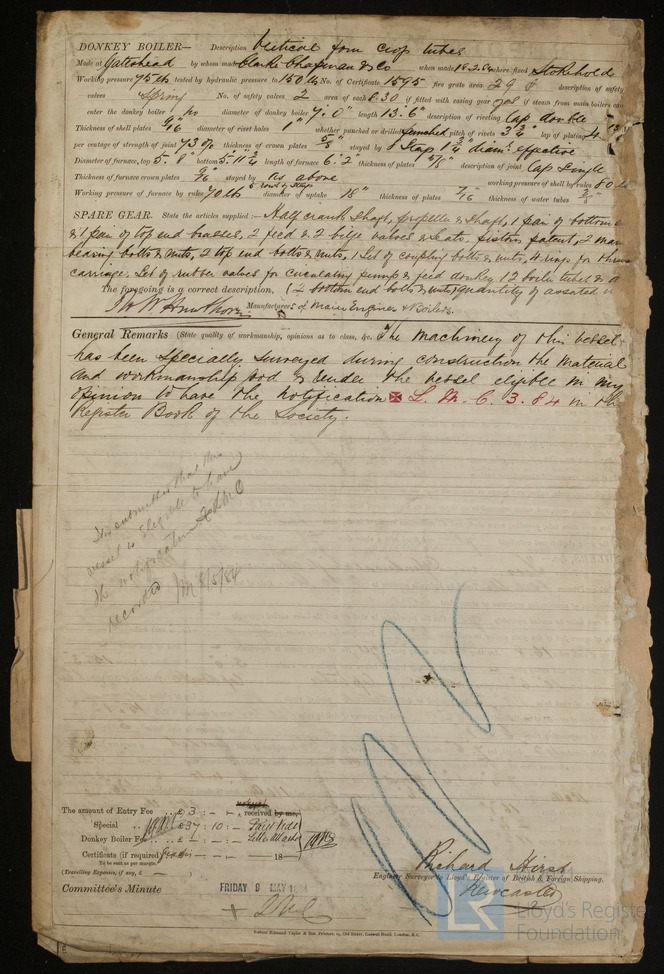 DONKEY BOILER— Description Vertical from crop tubes
Made at Gateshead by whom made Clarke Chapman & Co when made 18.2.84 where fixed Stokehold
Working pressure 75 lbs tested by hydraulic pressure to 150 lbs No. of Certificate 1595 fire grate area 29 description of safety
valves Spring No. of safety valves 2 area of each 8.30 if fitted with easing gear yes if steam from main boilers can
enter the donkey boiler no diameter of donkey boiler 7'.0" length 13'.6" description of riveting Lap double
Thickness of shell plates 9/16 diameter of rivet holes 1" whether punched or drilled punched pitch of rivets 3 lap of plating 4
per centage of strength of joint 73 % thickness of crown plates 5/8" stayed by 8 Stays diamr. effective
Diameter of furnace, top 5'.8" bottom length of furnace 6'.2" thickness of plates description of joint Lap single
Thickness of furnace crown plates 9/16 stayed by as above working pressure of shell by rules 80 lbs
Working pressure of furnace by rules 70 lbs diameter of uptake 18" thickness of plates 7/16 thickness of water tubes 3/8"
SPARE GEAR. State the articles supplied:— Half crank shaft, propeller & shaft, 1 pair of bottom
& 1 pair of top end brasses, 2 feed & 2 bilge valves & seats, piston patent, 2 main
bearing bolts & nuts, 2 top end bolts & nuts, 1 Set of coupling bolts & nuts, 4 rings for thrust
carriage, Set of rubber valves for circulating pump & feed donkey 12 boiler tubes & a
The foregoing is a correct description, (2 bottom end bolts & nuts) quantity of assorted
Hawthorn Manufacturers of Main Engines & Boilers.
General Remarks (State quality of workmanship, opinions as to class, &c. The Machinery of this vessel
has been specially surveyed during construction the Material
and workmanship good & render the vessel eligible in my
opinion to have the Notification ✠ L. M. C. 3. 84 in the
Register Book of the Society.
It is submitted that this
vessel is eligible to have
the notification LMC
recorded 8/5/84
The amount of Entry Fee .. £ 3 : — : — received by me,
Special .. £ 37 : 10 : —
Donkey Boiler Fee .. £ — : — : —
Certificate (if required) — — — 18 —
To be sent as per margin.
(Travelling Expenses, if any, £ — )
Richard Hirst
Engineer Surveyor to Lloyd's Register of British & Foreign Shipping.
Newcastle
Committee's Minute FRIDAY 9 MAY 1884
+ LMC
LR
Lloyd's Register
Foundation